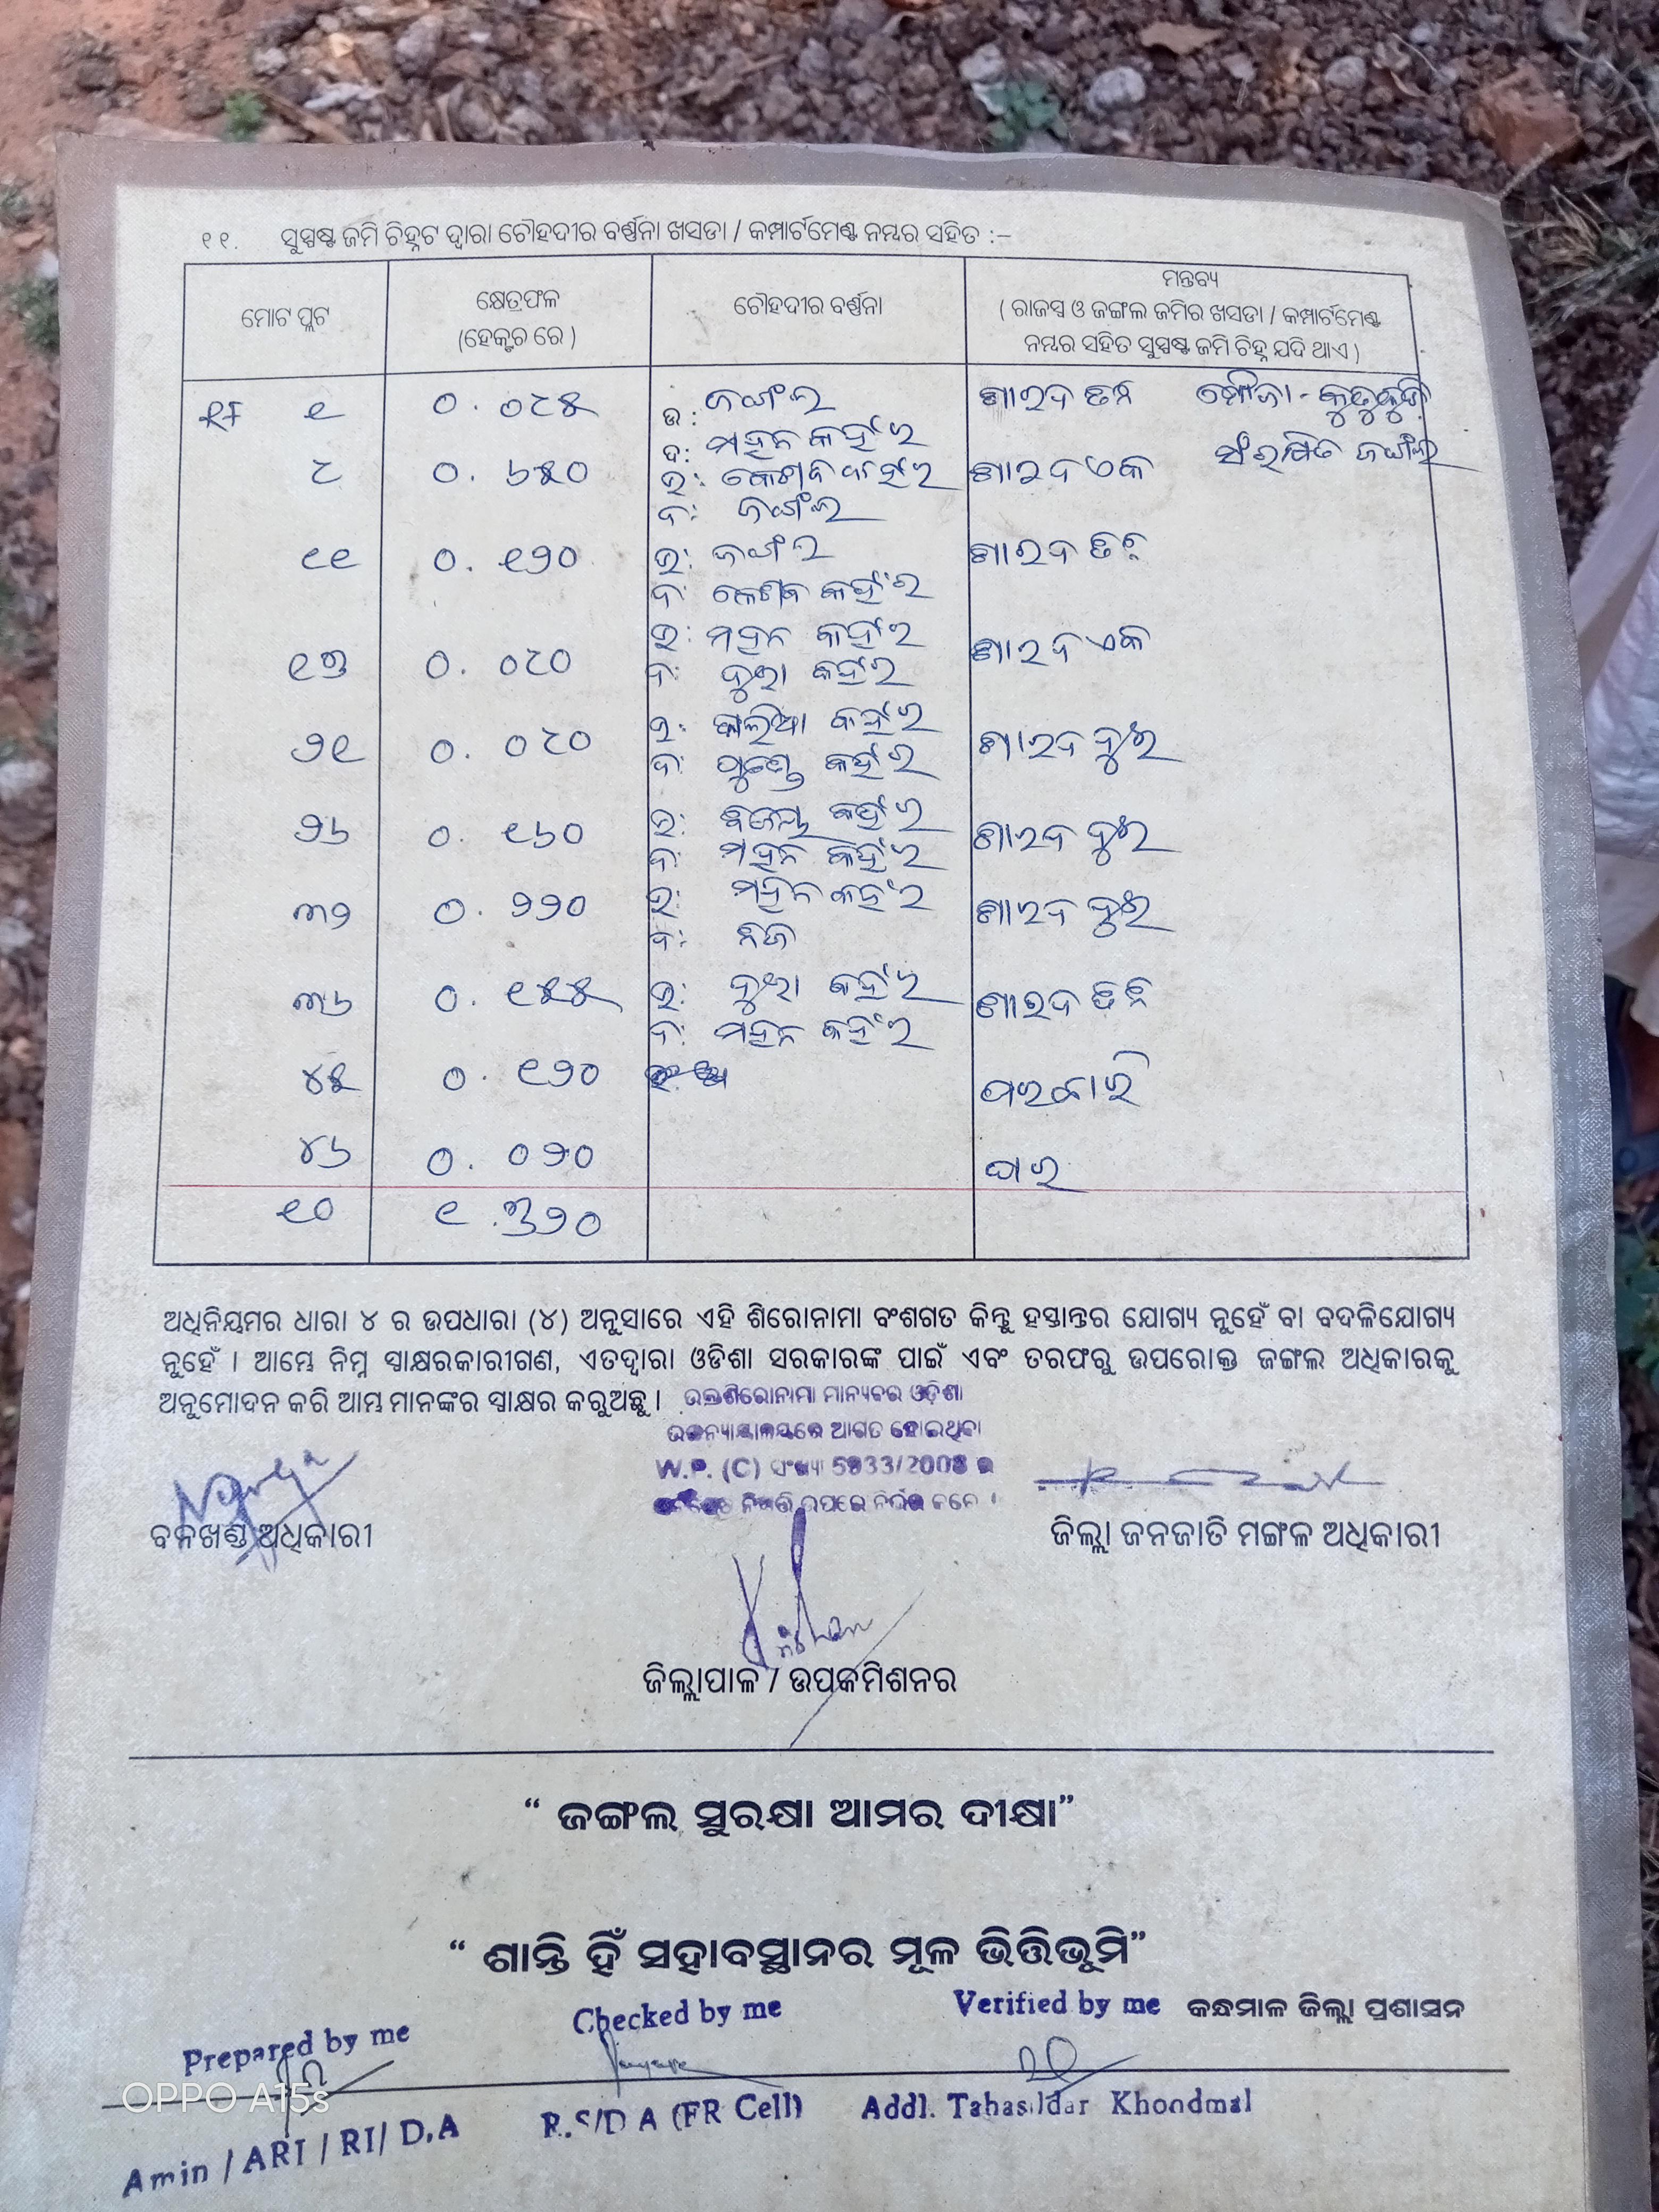 ୧୧. ସୁସ୍ପଷ୍ଟ ଜମି ଚିହ୍ନଟ ଦ୍ଵାରା ଚୌହଦୀର ବର୍ଣ୍ଣନା ଖସଡା / କମ୍ପାର୍ଟମେଣ୍ଟ ନମ୍ବର ସହିତ :–
ମୋଟ ପ୍ଲଟ
କ୍ଷେତ୍ରଫଳ
(ହେକ୍ଟର ରେ )
ଚୌହଦୀର ବର୍ଣ୍ଣନା
ମନ୍ତବ୍ୟ
( ରାଜସ୍ଵ ଓ ଜଙ୍ଗଲ ଜମିର ଖସଡା / କମ୍ପାର୍ଟମେଣ୍ଟ
ନମ୍ବର ସହିତ ସୁସ୍ପଷ୍ଟ ଜମି ଚିହ୍ନ ଯଦି ଥାଏ )
RF ୧ ୦.୦୮୫ ଉ: ଜଙ୍ଗଲ ଶାରଦ ତିନି ମୌଜା-
ଦ: ମହନ କହଁର ସଂରକ୍ଷିତ ଜଙ୍ଗଲ
୮ ୦.୬୫୦ ଉ: କେଶବ କହଁର ଶାରଦ ଏକ
ଦ: ଜଙ୍ଗଲ
୧୧ ୦.୧୨୦ ଉ: ଜଙ୍ଗଲ ଶାରଦ ତିନି
ଦ: କେଶବ କହଁର
୧୩ ୦.୦୮୦ ଉ: ମହନ କହଁର ଶାରଦ ଏକ
ଦ: କହଁର
୨୧ ୦.୦୮୦ ଉ: କାଲିଆ କହଁର ଶାରଦ ଦୁଇ
ଦ: କହଁର
୨୬ ୦.୧୬୦ ଉ: କହଁର ଶାରଦ ଦୁଇ
ଦ: ମହନ କହଁର
୩୨ ୦.୨୨୦ ଉ: ମହନ କହଁର ଶାରଦ ଦୁଇ
ଦ: ନିଜ
୩୬ ୦.୧୫୫ ଉ: କହଁର ଶାରଦ ତିନି
ଦ: ମହନ କହଁର
୪୫ ୦.୧୨୦ ଘରବାରି
୪୬ ୦.୦୨୦ ଘର
୧୦ ୧.୬୨୦
ଅଧିନିୟମର ଧାରା ୪ ର ଉପଧାରା (୪) ଅନୁସାରେ ଏହି ଶିରୋନାମା ବଂଶଗତ କିନ୍ତୁ ହସ୍ତାନ୍ତର ଯୋଗ୍ୟ ନୁହେଁ ବା ବଦଳିଯୋଗ୍ୟ
ନୁହେଁ । ଆମ୍ଭେ ନିମ୍ନ ସ୍ଵାକ୍ଷରକାରୀଗଣ, ଏତଦ୍ଵାରା ଓଡିଶା ସରକାରଙ୍କ ପାଇଁ ଏବଂ ତରଫରୁ ଉପରୋକ୍ତ ଜଙ୍ଗଲ ଅଧିକାରକୁ
ଅନୁମୋଦନ କରି ଆମ୍ଭ ମାନଙ୍କର ସ୍ଵାକ୍ଷର କରୁଅଛୁ ।
ଉକ୍ତ ଶିରୋନାମା ମାନ୍ୟବର ଓଡ଼ିଶା
ଉଚ୍ଚନ୍ୟାୟାଳୟରେ ଆଗତ ହୋଇଥିବା
W.P. (C) ସଂଖ୍ୟା 5933/2008 ର
ଉପରେ ନିର୍ଭର କରେ ।
ବନଖଣ୍ଡ ଅଧିକାରୀ
ଜିଲ୍ଲା ଜନଜାତି ମଙ୍ଗଳ ଅଧିକାରୀ
ଜିଲ୍ଲାପାଳ / ଉପକମିଶନର
“ ଜଙ୍ଗଲ ସୁରକ୍ଷା ଆମର ଦୀକ୍ଷା”
“ ଶାନ୍ତି ହିଁ ସହାବସ୍ଥାନର ମୂଳ ଭିତ୍ତିଭୂମି”
Prepared by me Checked by me Verified by me କନ୍ଧମାଳ ଜିଲ୍ଲା ପ୍ରଶାସନ
OPPO A15s
Amin / ARI / RI/ D.A R.S/D A (FR Cell) Addl. Tahasildar Khondmal